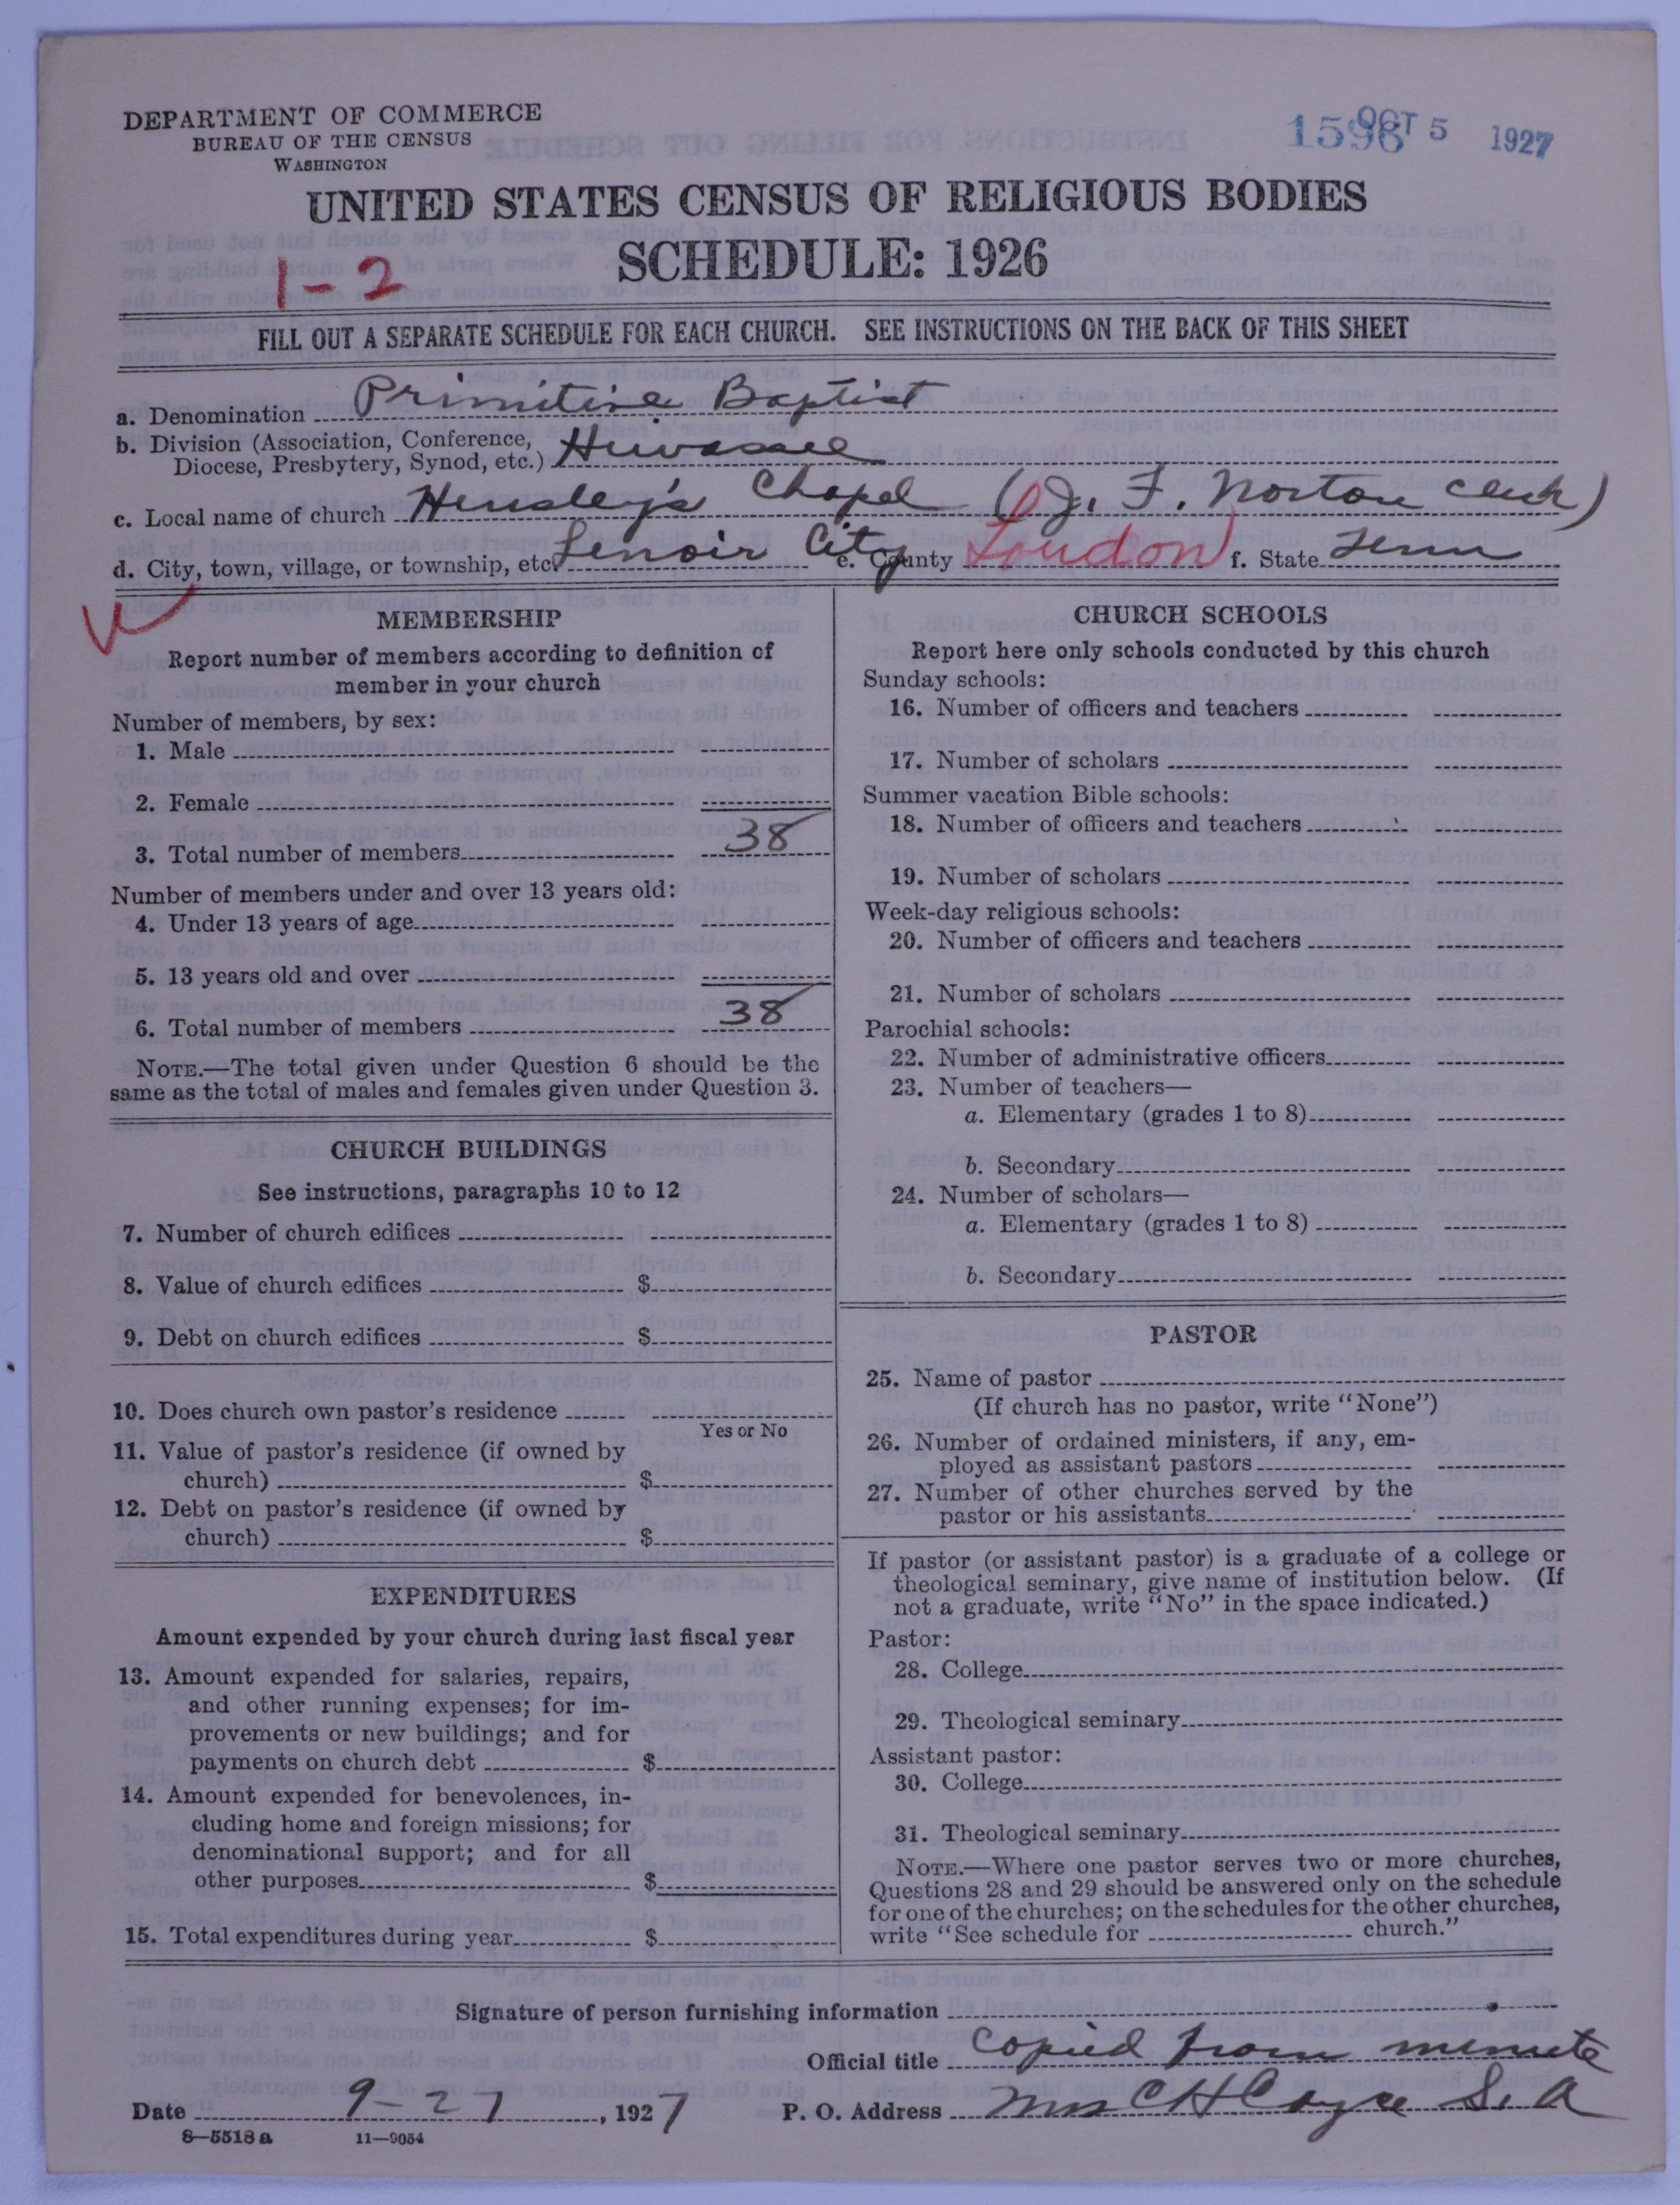 DEPARTMENT OF COMMERCE
BUREAU OF THE CENSUS
WASHINGTON
1596 OCT 5 1927
UNITED STATES CENSUS OF RELIGIOUS BODIES
SCHEDULE: 1926
1-2
FILL OUT A SEPARATE SCHEDULE FOR EACH CHURCH. SEE INSTRUCTIONS ON THE BACK OF THIS SHEET
a. Denomination Primitive Baptist
b. Division (Association, Conference, Diocese, Presbytery, Synod, etc.) Hiwassee
c. Local name of church Hensley's Chapel (J. F. Norton clerk)
d. City, town, village, or township, etc. Lenoir City e. County Loudon f. State Tenn
MEMBERSHIP
Report number of members according to definition of
member in your church
Number of members, by sex:
1. Male
2. Female
3. Total number of members 38
Number of members under and over 13 years old:
4. Under 13 years of age
5. 13 years old and over
6. Total number of members 38
NOTE.—The total given under Question 6 should be the
same as the total of males and females given under Question 3.
CHURCH BUILDINGS
See instructions, paragraphs 10 to 12
7. Number of church edifices
8. Value of church edifices $
9. Debt on church edifices $
10. Does church own pastor's residence
Yes or No
11. Value of pastor's residence (if owned by
church) $
12. Debt on pastor's residence (if owned by
church) $
EXPENDITURES
Amount expended by your church during last fiscal year
13. Amount expended for salaries, repairs,
and other running expenses; for im-
provements or new buildings; and for
payments on church debt $
14. Amount expended for benevolences, in-
cluding home and foreign missions; for
denominational support; and for all
other purposes $
15. Total expenditures during year $
CHURCH SCHOOLS
Report here only schools conducted by this church
Sunday schools:
16. Number of officers and teachers
17. Number of scholars
Summer vacation Bible schools:
18. Number of officers and teachers
19. Number of scholars
Week-day religious schools:
20. Number of officers and teachers
21. Number of scholars
Parochial schools:
22. Number of administrative officers
23. Number of teachers—
a. Elementary (grades 1 to 8)
b. Secondary
24. Number of scholars—
a. Elementary (grades 1 to 8)
b. Secondary
PASTOR
25. Name of pastor
(If church has no pastor, write "None")
26. Number of ordained ministers, if any, em-
ployed as assistant pastors
27. Number of other churches served by the
pastor or his assistants
If pastor (or assistant pastor) is a graduate of a college or
theological seminary, give name of institution below. (If
not a graduate, write "No" in the space indicated.)
Pastor:
28. College
29. Theological seminary
Assistant pastor:
30. College
31. Theological seminary
NOTE.—Where one pastor serves two or more churches,
Questions 28 and 29 should be answered only on the schedule
for one of the churches; on the schedules for the other churches,
write "See schedule for church."
Signature of person furnishing information
Official title Copied from minute
Date 9-27, 1927 P. O. Address Mrs C H Cayce S. A
8—5518a 11—9054